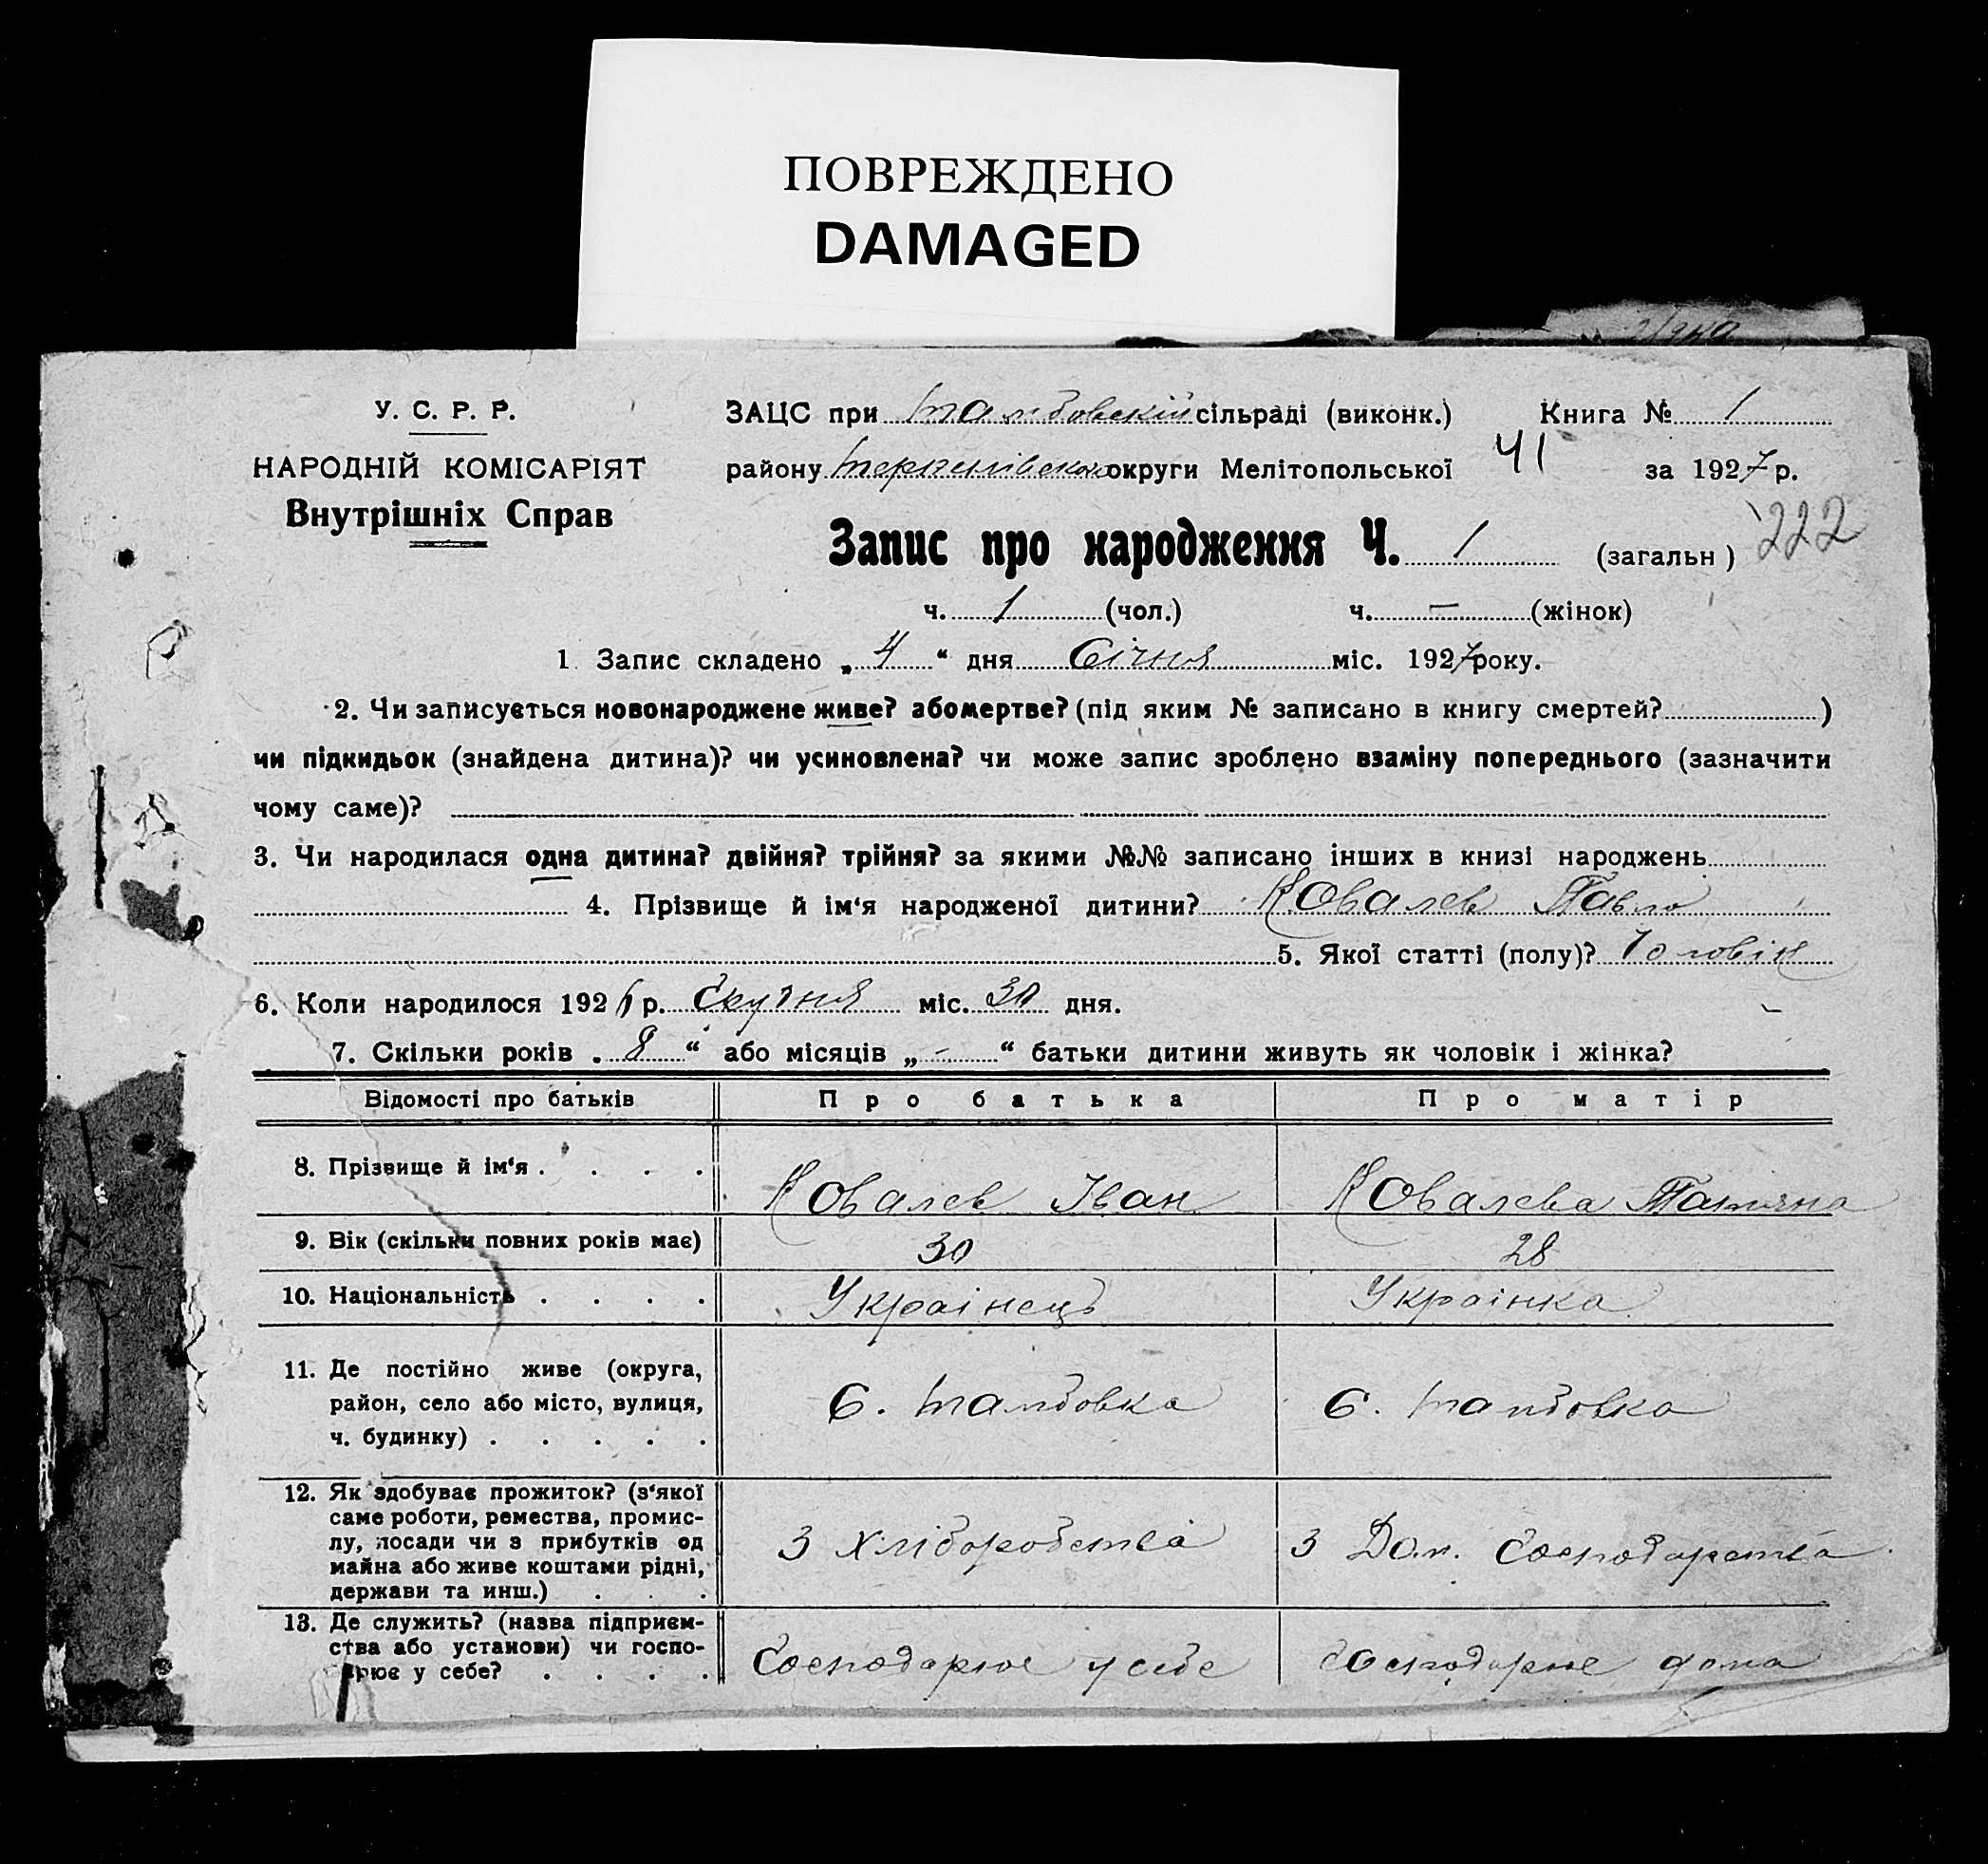 ПОВРЕЖДЕНО
DAMAGED
У. С. Р. Р.
НАРОДНІЙ КОМІСАРІЯТ
Внутрішніх Справ
ЗАЦС при Тамбовскій сільраді (виконк.) Книга № 1
району округи Мелітопольської 41 за 1927 р.
Запис про народження Ч. 1 (загальн) 222
ч. 1 (чол.) ч. — (жінок)
1. Запис складено „4“ дня Січня міс. 1927 року.
2. Чи записується новонароджене живе? або мертве? (під яким № записано в книгу смертей? )
чи підкидьок (знайдена дитина)? чи усиновлена? чи може запис зроблено взаміну попереднього (зазначити
чому саме)?
3. Чи народилася одна дитина? двійня? трійня? за якими №№ записано інших в книзі народжень
4. Прізвище й ім‘я народженої дитини? Ковалев Павло
5. Якої статті (полу)? Чоловік
6. Коли народилося 1926 р. міс. 30 дня.
7. Скільки років „8“ або місяців „-“ батьки дитини живуть як чоловік і жінка?
Відомості про батьків Про батька Про матір
8. Прізвище й ім‘я . . . . Ковалев Іван Ковалева Татяна
9. Вік (скільки повних років має) 30 28
10. Національність . . . . Украінець Украінка
11. Де постійно живе (округа,
район, село або місто, вулиця,
ч. будинку) . . . . . С. Тамбовка С. Тамбовка
12. Як здобуває прожиток? (з‘якої
саме роботи, ремества, промис-
лу, посади чи з прибутків од
майна або живе коштами рідні,
держави та инш.) . . . З хліборобства З Дом. Господарства
13. Де служить? (назва підприєм-
ства або установи) чи госпо-
рює у себе? . . . . Господарює у себе Господарює дома